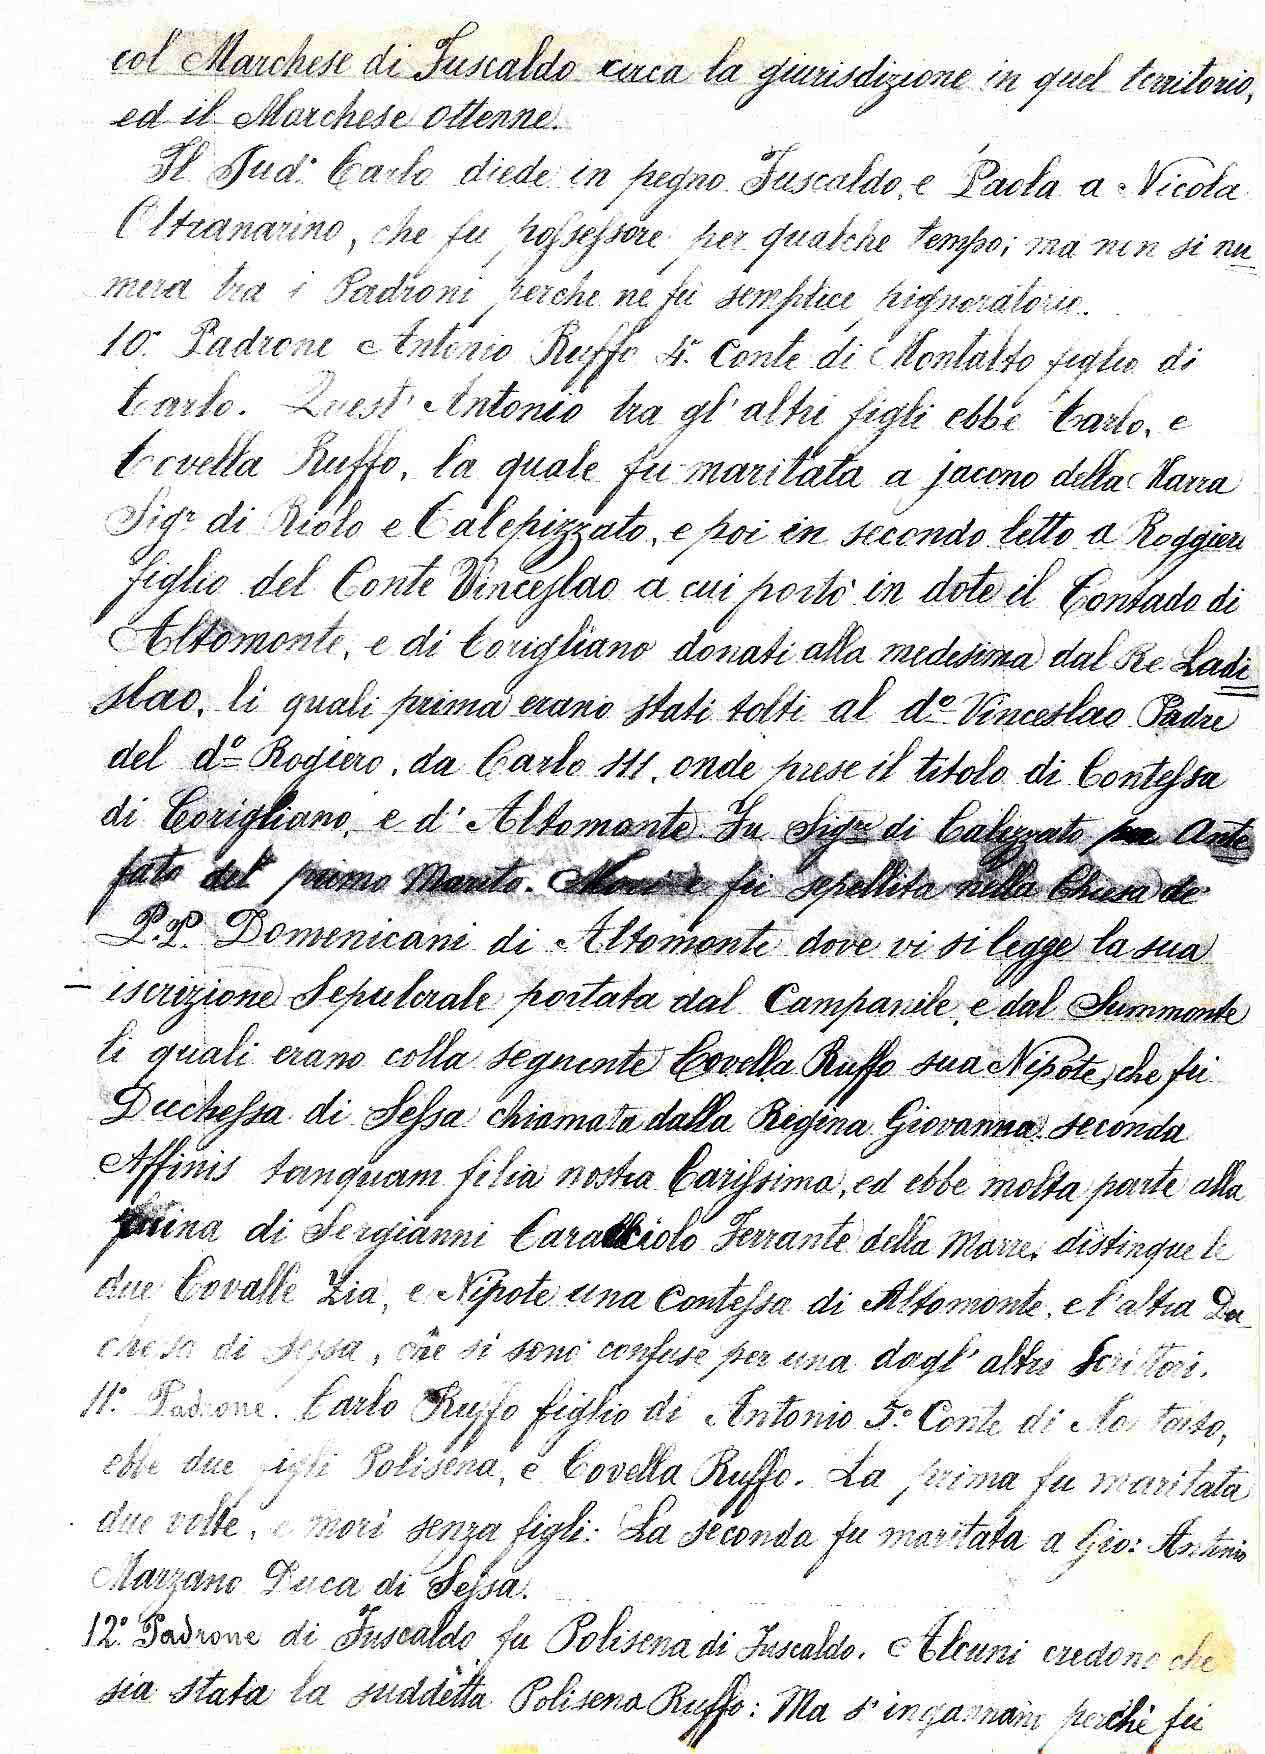 col Marchese di Fuscaldo circa la giurisdizione in quel territorio,
ed il Marchese ottenne.
Il Sud.º Carlo diede in pegno Fuscaldo, e Paola a Nicola
Oltranarino, che fu possessore per qualche tempo; ma non si nu=
mera tra i Padroni perche ne fù semplice pignoratorio.
10.º Padrone Antonio Ruffo 4.º Conte di Montalto figlio di
Carlo. Quest' Antonio tra gl' altri figli ebbe Carlo, e
Covella Ruffo, la quale fu maritata a jacono della Marra
Sigr di Riolo e Calepizzato, e poi in secondo letto a Roggieri
figlio del Conte Vinceslao a cui portò in dote il Contado di
Altomonte, e di Corigliano donati alla medesima dal Re Ladi=
slao, li quali prima erano stati tolti al dº Vinceslao Padre
del dº Rogiero, da Carlo III, onde prese il titolo di Contessa
di Corigliano, e d' Altomonte. Fu Sigra di Calizzato per Ante=
fato del primo Marito. Morì e fù sepellita nella Chiesa de'
P.P. Domenicani di Altomonte dove vi si legge la sua
iscrizione Sepulcrale portata dal Campanile, e dal Summonte
li quali erano colla seguente Covella Ruffo sua Nipote, che fù
Duchessa di Sessa chiamata dalla Regina Giovanna seconda
Affinis tanquam filia nostra Carissima, ed ebbe molta parte alla
ruina di Sergianni Caracciolo Ferrante della Marre, distingue le
due Covalle Zia, e Nipote una Contessa di Altomonte, e l'altra Du=
chessa di Sessa, che si sono confuse per una dagl' altri Scrittori.
11.º Padrone. Carlo Ruffo figlio di Antonio 5.º Conte di Montalto,
ebbe due figli Polisena, e Covella Ruffo. La prima fu maritata
due volte, e morì senza figli: La seconda fu maritata a Gio: Antonio
Marzano Duca di Sessa.
12.º Padrone di Fuscaldo fu Polisena di Fuscaldo. Alcuni credono che
sia stata la suddetta Polisena Ruffo: Ma s' ingannano perchè fù